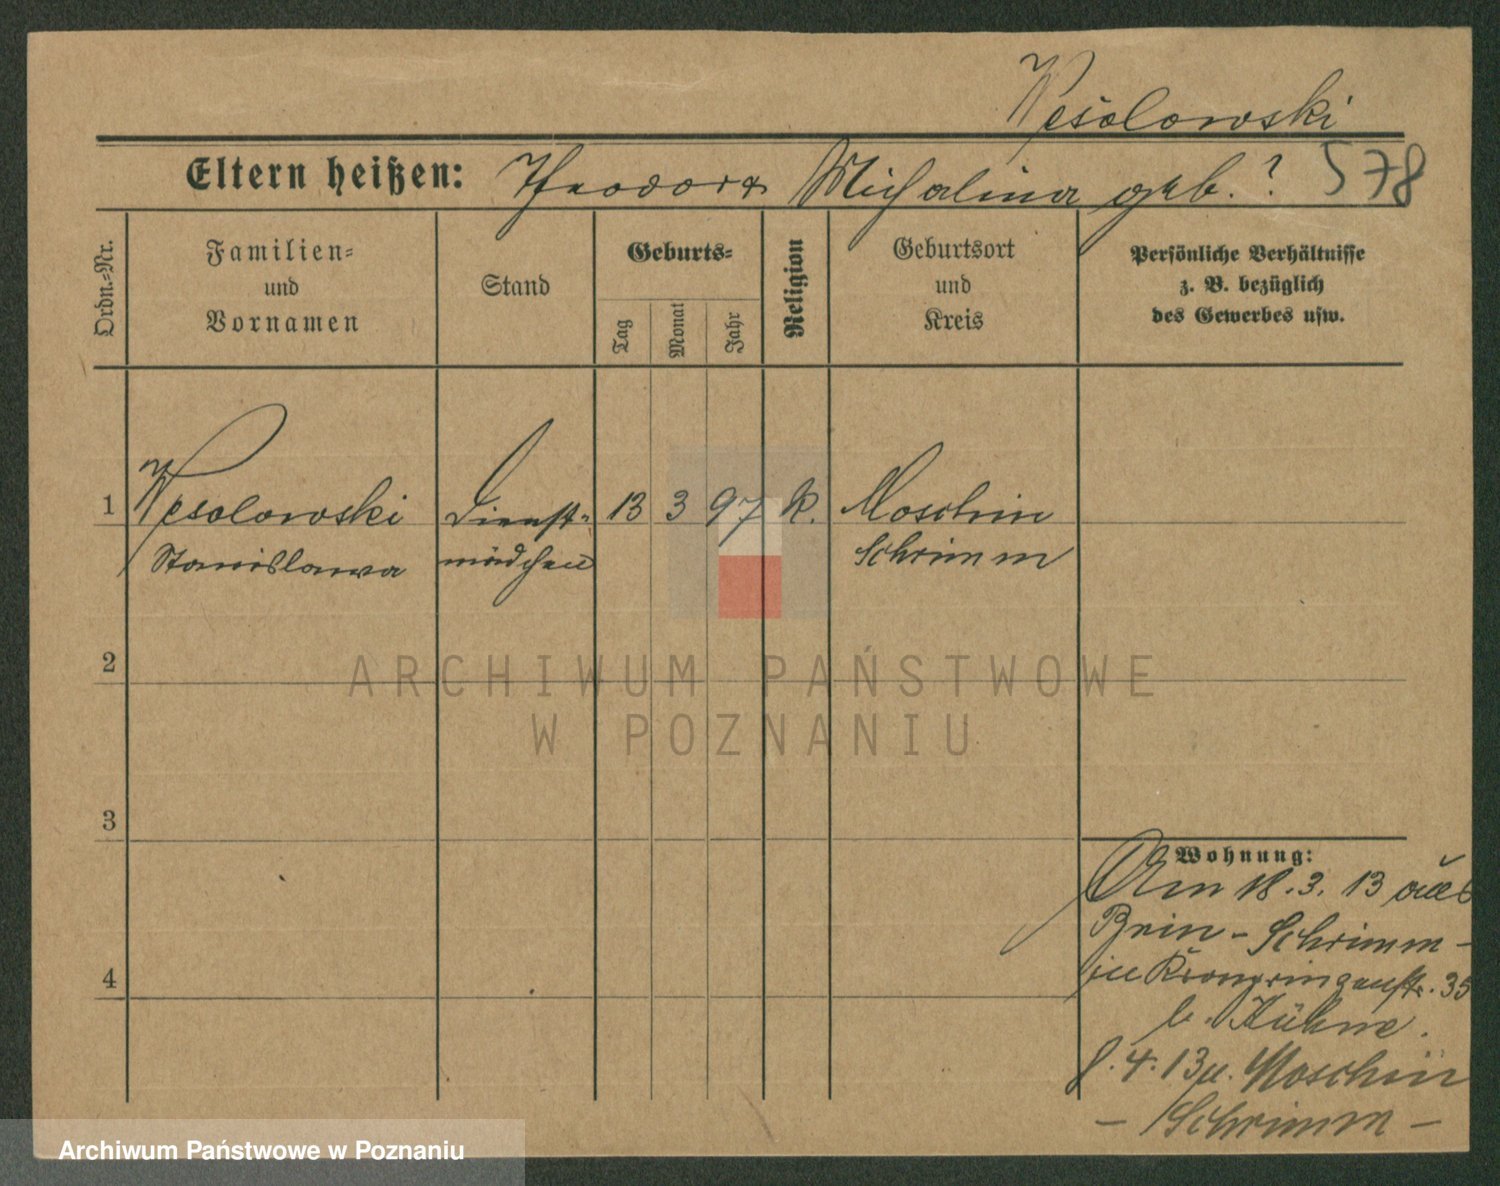 Wesolowski
Eltern heißen: Theodor & Michalina geb. ? 578
Ordn.-Nr.
Familien-
und
Vornamen
Stand
Geburts-
Tag
Monat
Jahr
Religion
Geburtsort
und
Kreis
Persönliche Verhältnisse
z. B. bezüglich
des Gewerbes usw.
1 Wesolowski Dienst- 13 3 97 k. Moschin
Stanislawa mädchen Schrimm
2
3
4
Wohnung:
Am 18. 3. 13 aus
Brin - Schrimm -
in Kronprinzenstr. 35
b. Kühne.
8. 4. 13 n. Moschin
- Schrimm -
ARCHIWUM PAŃSTWOWE
W POZNANIU
Archiwum Państwowe w Poznaniu